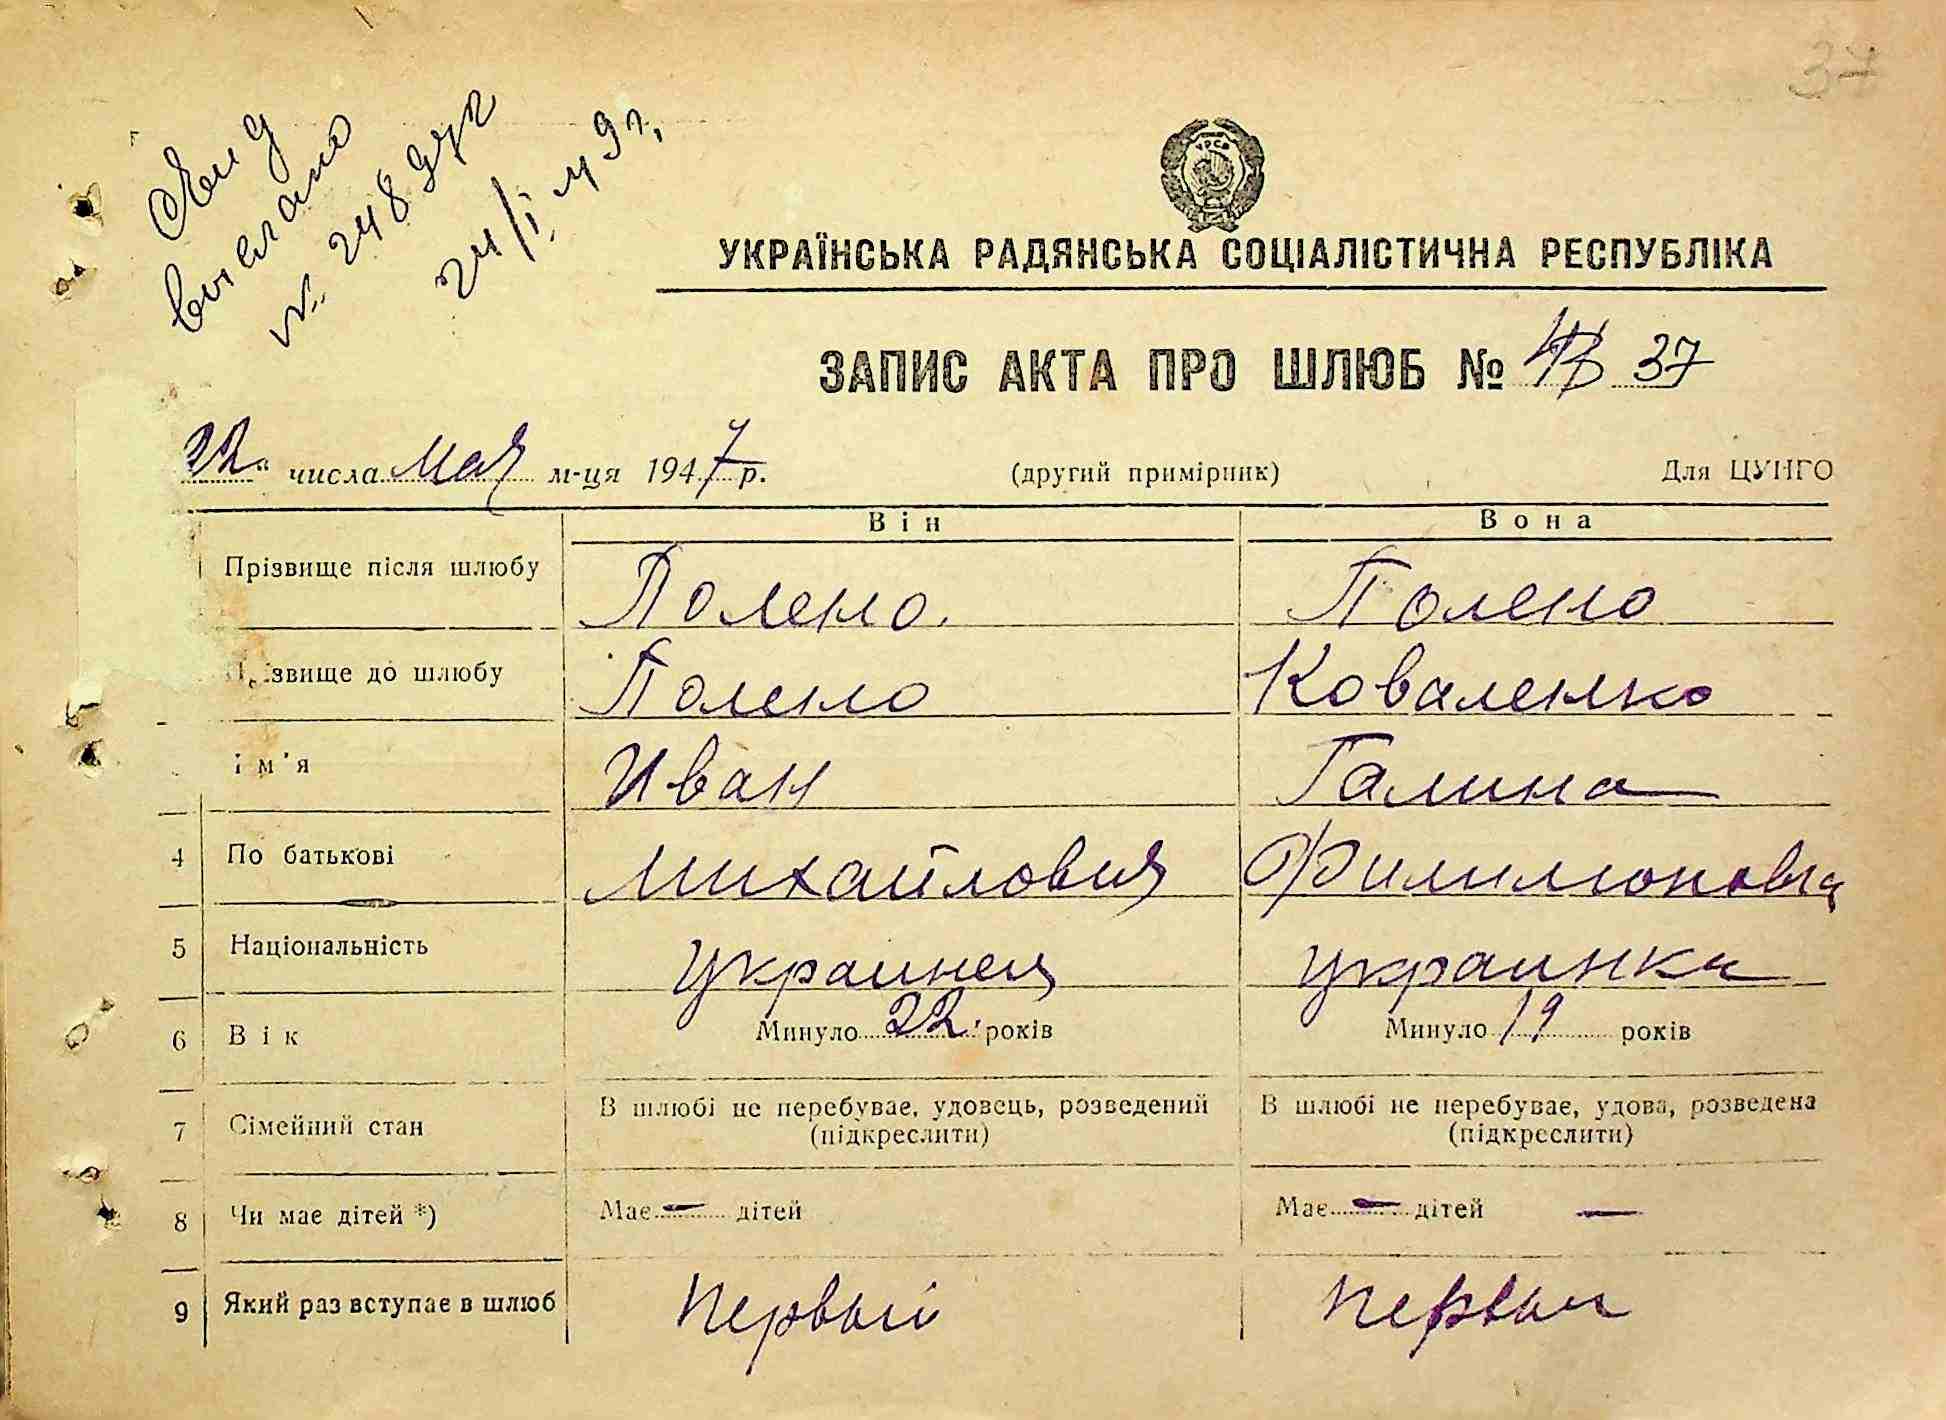 37
выслано
№ 248 дуг
24/I 49 г,
УРСР
УКРАЇНСЬКА РАДЯНСЬКА СОЦІАЛІСТИЧНА РЕСПУБЛІКА
ЗАПИС АКТА ПРО ШЛЮБ № 37
22" числа мая м-ця 1947 р. (другий примірник) Для ЦУНГО
Він Вона
Прізвище після шлюбу Полено. Полено
Прізвище до шлюбу Полено Коваленко
Ім'я Иван Галина
4 По батькові Михайлович Филимоновна
5 Національність украинец украинка
6 Вік Минуло 22 років Минуло 19 років
7 Сімейний стан В шлюбі не перебуває, удовець, розведений В шлюбі не перебуває, удова, розведена
(підкреслити) (підкреслити)
8 Чи має дітей *) Має — дітей Має — дітей —
9 Який раз вступає в шлюб первый первый